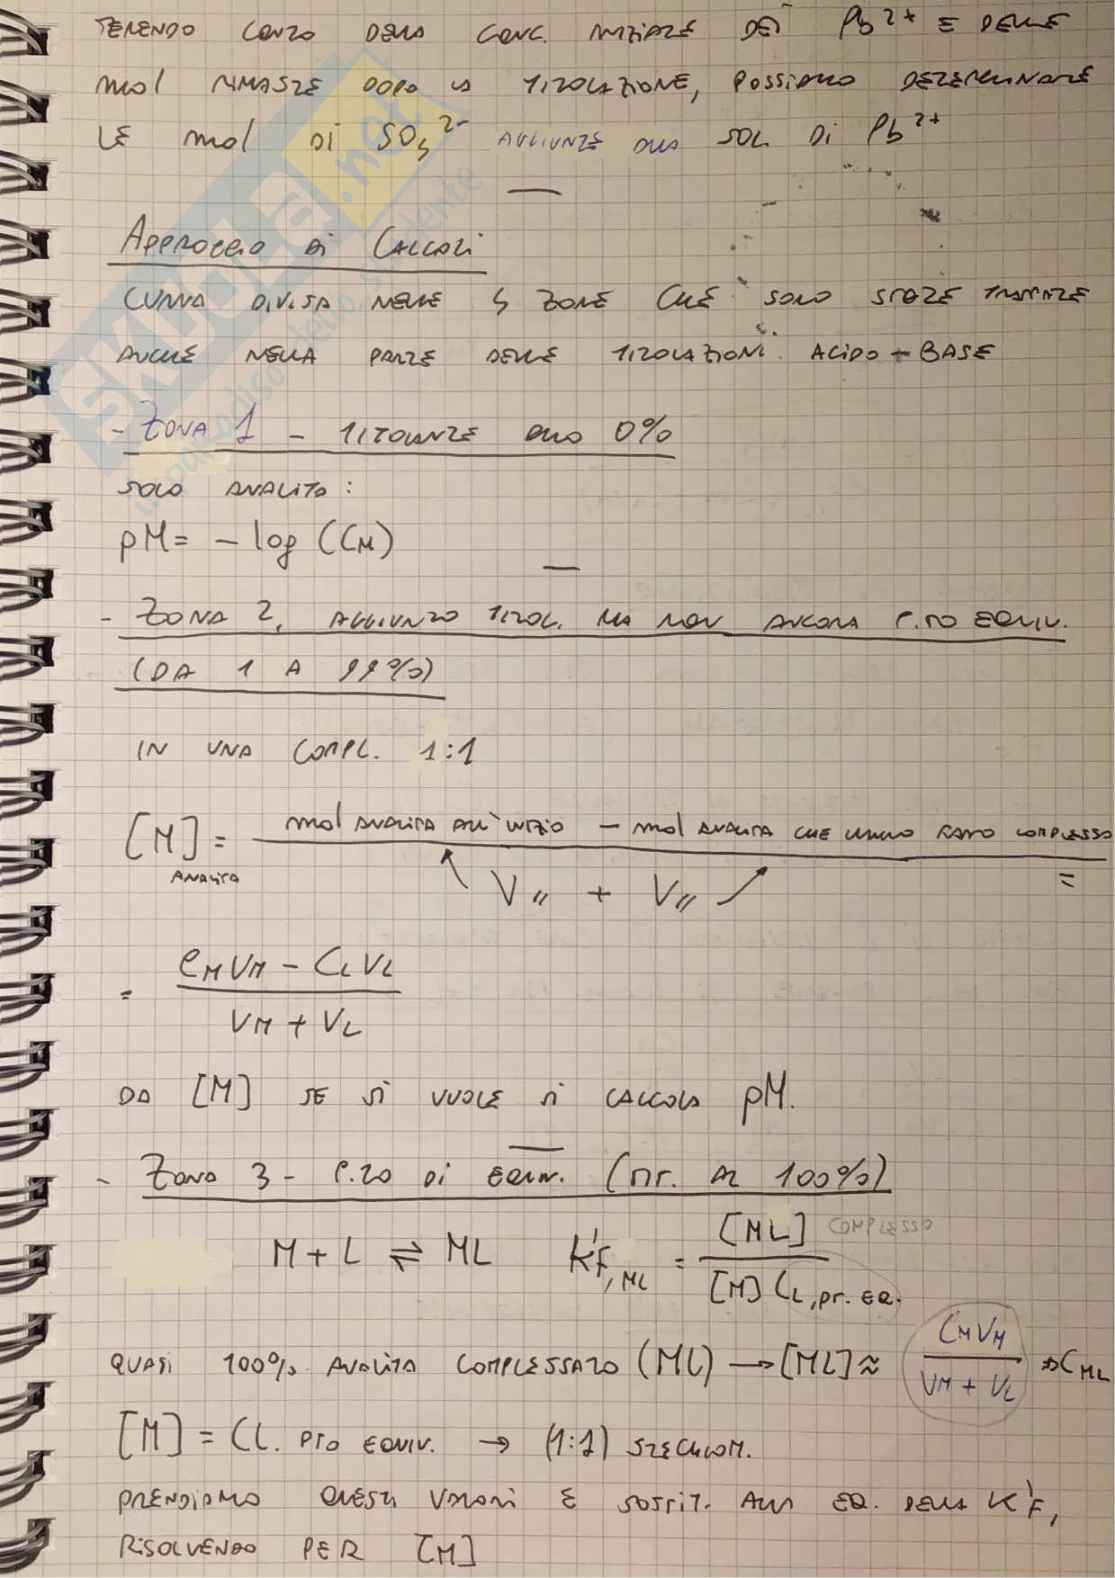 TENENDO CONTO DELLA CONC. INIZIALE DEI Pb²⁺ E DELLE
mol RIMASTE DOPO LA TITOLAZIONE, POSSIAMO DETERMINARE
LE mol DI SO₄²⁻ AGGIUNTE ALLA SOL. DI Pb²⁺
APPROCCIO DI CALCOLI
CURVA DIVISA NELLE 4 ZONE CHE SONO STATE TRATTATE
ANCHE NELLA PARTE DELLE TITOLAZIONI ACIDO-BASE
- ZONA 1 - TITOLANTE ALLO 0%
SOLO ANALITO:
pM = - log (CM)
- ZONA 2, AGGIUNTO TITOL. MA NON ANCORA P.TO EQUIV.
(DA 1 A 99%)
IN UNA COMPL. 1:1
[M] = mol ANALITA ALL'INIZIO - mol ANALITA CHE HANNO FATTO COMPLESSO
ANALITA
V " + V "
=
= CM VM - CL VL
VM + VL
DA [M] SE SI VUOLE SI CALCOLA pM.
- ZONA 3 - P.TO DI EQUIV. (TIT. AL 100%)
M + L ⇌ ML K'F, ML = [ML] COMPLESSO
[M] CL, pr. EQ.
QUASI 100% ANALITA COMPLESSATO (ML) → [ML] ≈ CM VM ⇒ CML
VM + VL
[M] = CL. PTO EQUIV. → (1:1) STECHIOM.
PRENDIAMO QUESTI VALORI E SOSTIT. ALLA EQ. DELLA K'F,
RISOLVENDO PER [M]
SKUOLA.net